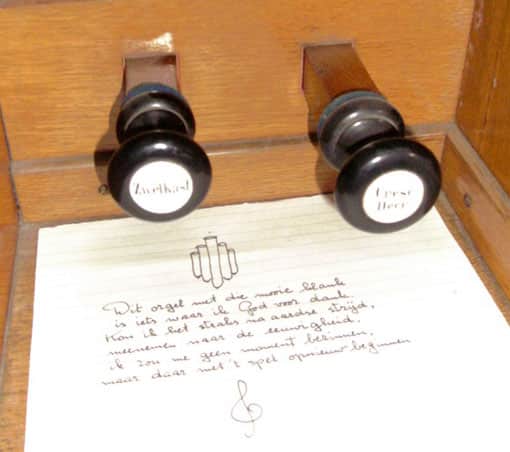 Zwelkast
Dit orgel met die mooie klank
is iets waar ik God voor dank.
Kon ik het straks na aardse strijd,
meenemen naar de eeuwigheid.
ik zou me geen moment bezinnen,
maar daar met 't spel opnieuw beginnen